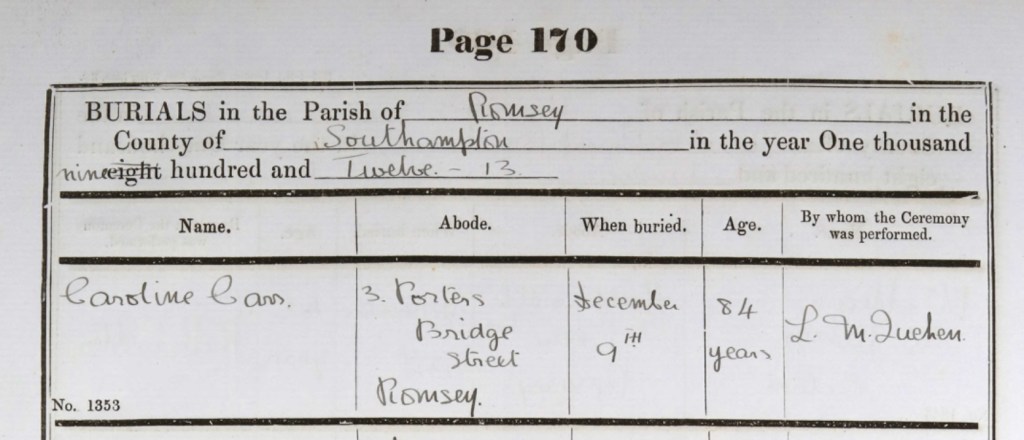 Page 170
BURIALS in the Parish of Romsey in the
County of Southampton in the year One thousand
nine eight hundred and Twelve - 13.
Name. Abode. When buried. Age. By whom the Ceremony was performed.
Caroline Carr. 3. Porters December 84 L. M.
Bridge 9TH years
Street
Romsey.
No. 1353